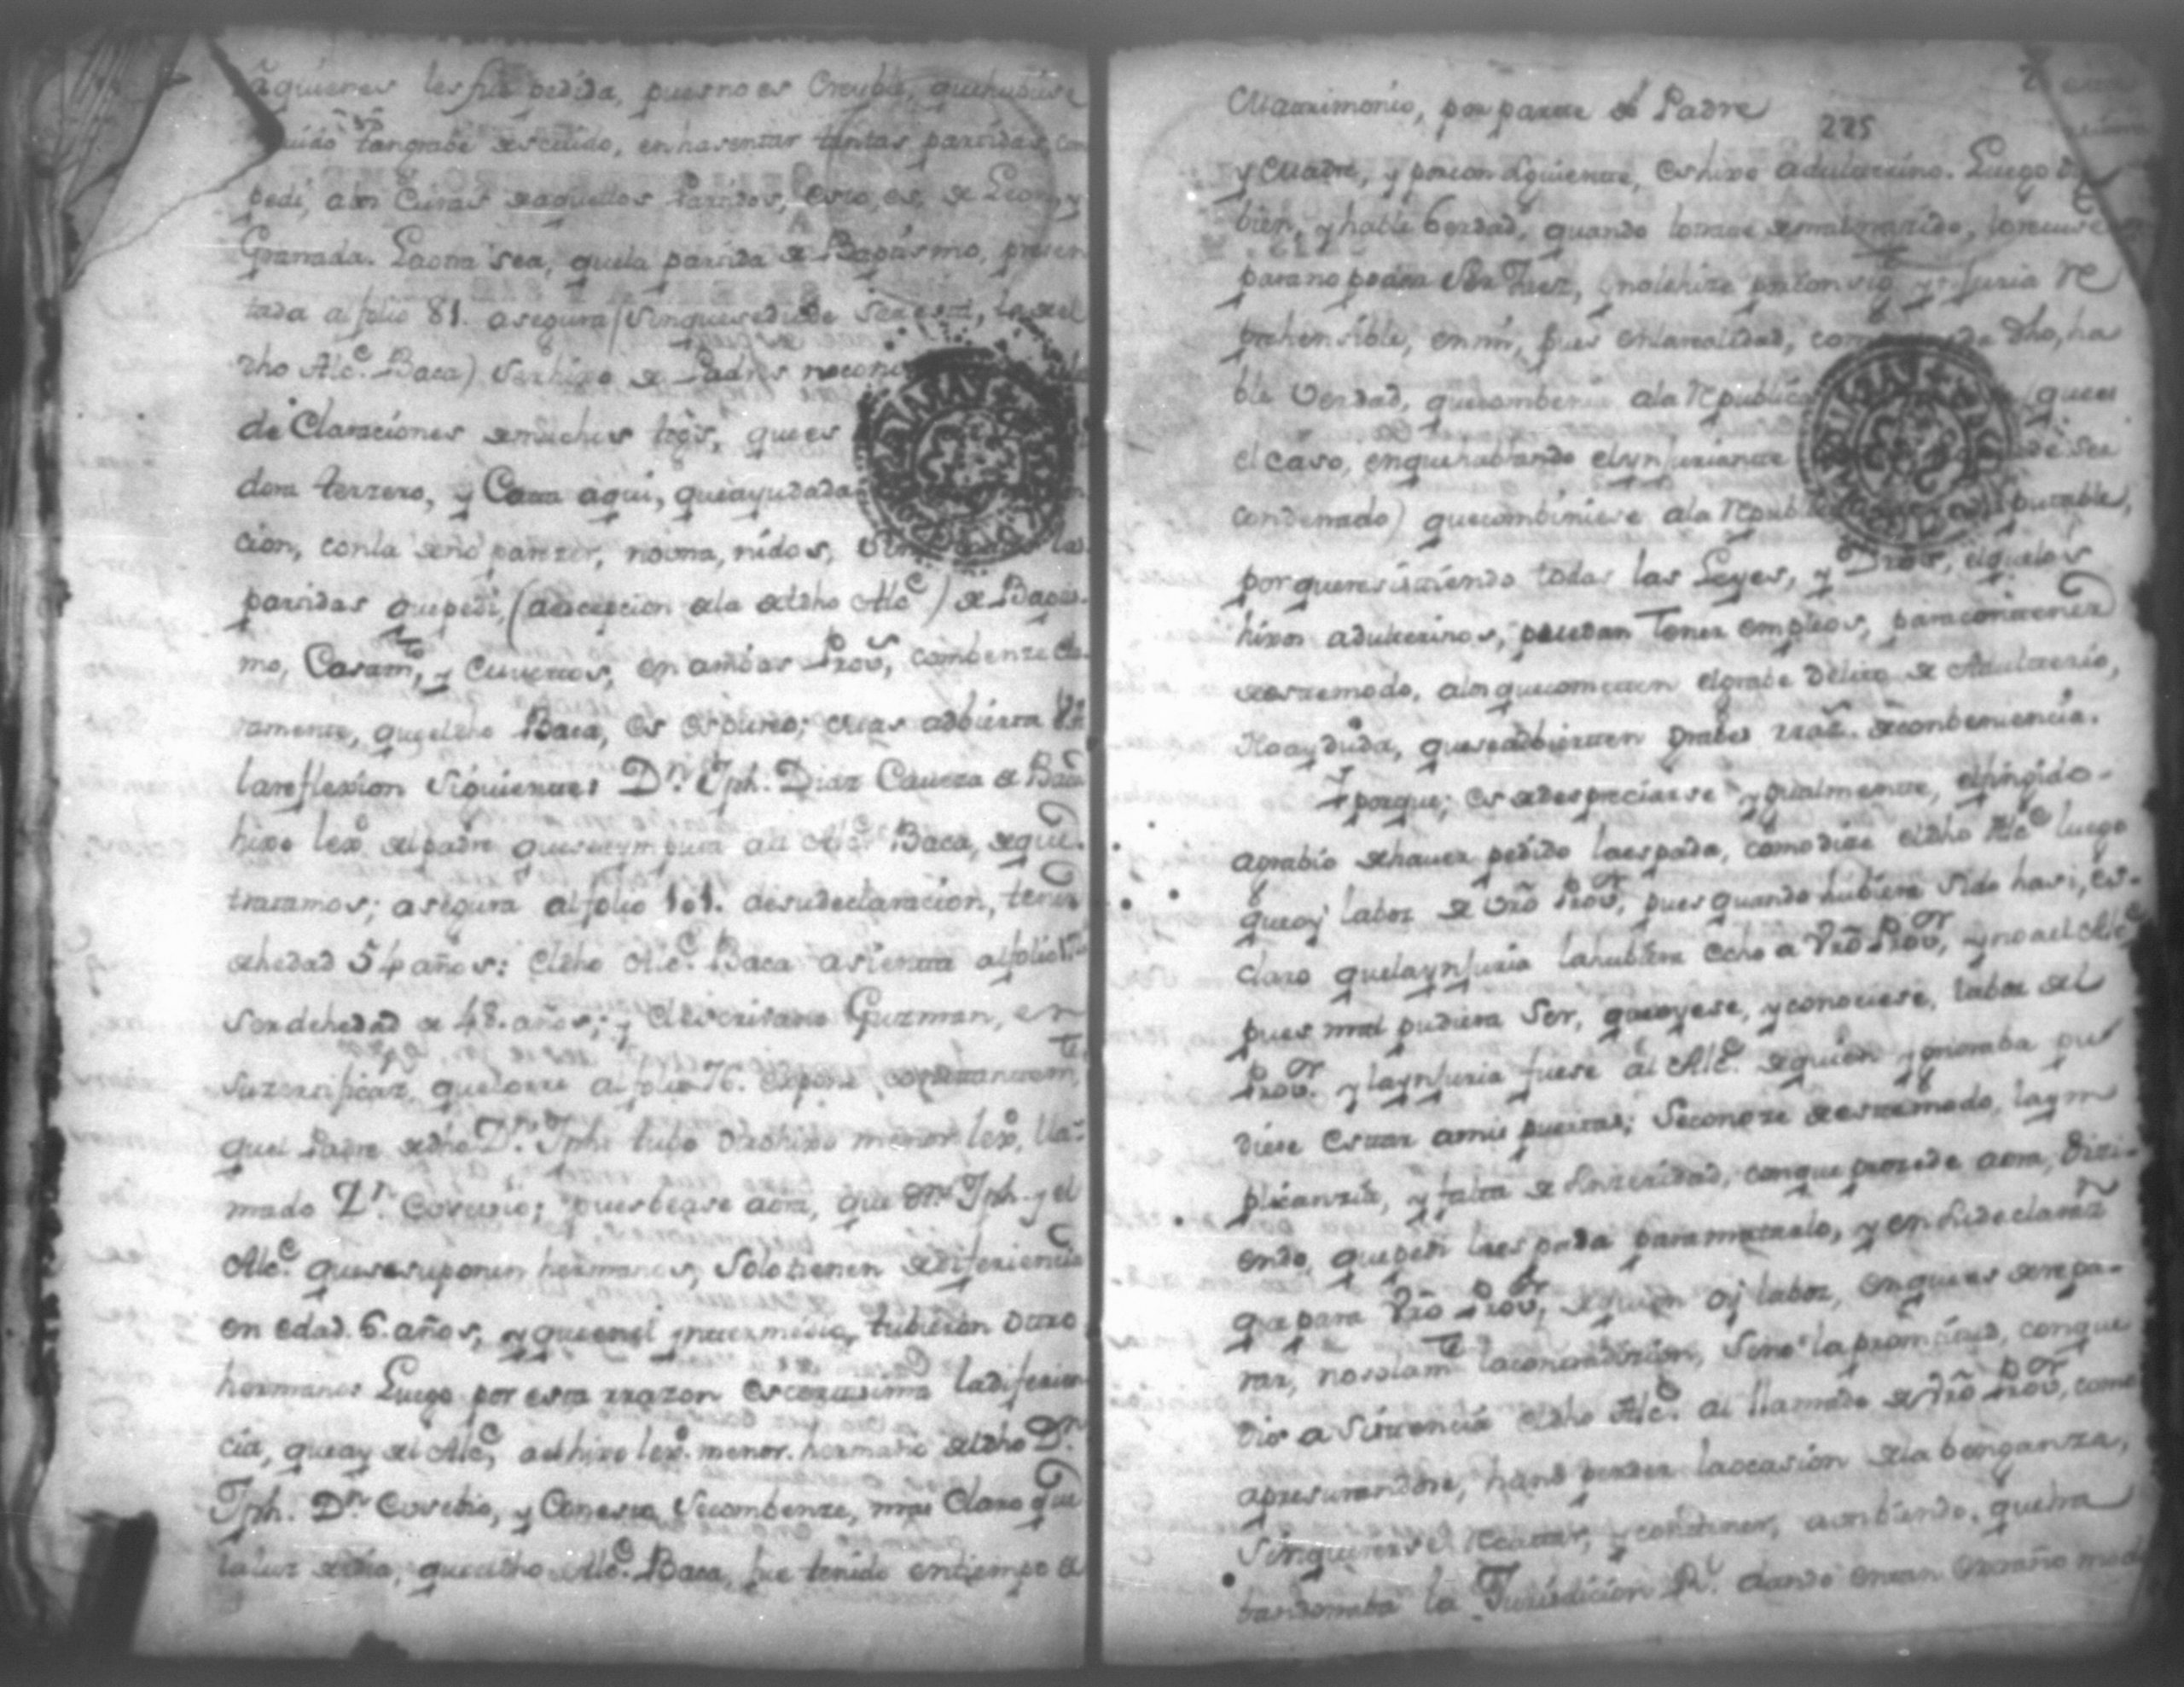 a quienes les fue pedida, pues no es Creyble, que hubiese
tan grabe descuido, en hasentar tantas partidas, como
pedi, alos Curas de aquellos Partidos, esto es, de Leon, y
Granada. La otra sea, que la partida de Baptismo, presen
tada al folio 81. asegura (sin que se dude ser esta, la del
dho Alc.e Baca) ser hixo de Padres no cono
de Claraciones de muchos tgõs, que es
dora terzero, y Cata aqui, que ayudada
cion, con la de no parezer, no una, ni dos, sino las
partidas que pedi, (a excepcion de la del dho Alc.e) de Baptis-
mo, Casam.to, y Entierros, en ambas Prov.s, combenze cla-
ramente, que el dho Baca, es espureo; mas adbierta V.A.
la reflexion siguiente: D.n Jph. Diaz Caveza de Baca
hixo lex.o del padre que se ymputa al Alc.e Baca, de que
tratamos; asegura al folio 101. de su declaracion, tener
de hedad 54 años: el dho Alc.e Baca asienta al folio
Ser de hedad de 48. años; y el escrivano Guzman, en
su zertificaz. que corre al folio 76. expone
que el Padre de dho D.n Jph. tubo otro hixo menor lex.o, lla-
mado D.n Eusevio; pues bease aora, que D.n Jph. y el
Alc.e que se suponen hermanos, solo tienen de diferiencia
en edad 6. años, y que en el yntermedio, tubieron otro
hermano: Luego por esta rrazon es certissima la diferien
cia, que ay del Alc.e, al hixo lex.o menor, hermano del dho D.n
Jph. D.n Eusebio, y Con esto, se combenze, mas Claro que
la luz del dia, que el dho Alc.e Baca, fue tenido en tiempo de
Matrimonio, por parte del Padre
225
y Madre, y por consiguiente, es hixo adulterino. Luego dixe
bien, y hable berdad, quando lo trate de mal nazido, lo recuse
para no poder ser Juez, y no le hize por con sig.te ynjuria re
prehensible, en mi, pues en la realidad, como dho, ha
ble Verdad, que combenia a la Republica (que es
el caso, en que hablando el ynjuriante de ser
condenado) que combiniese a la Republica
por que resistiendo todas las Leyes, y Dros, el que los
hixos adulterinos, puedan tener empleos, para contener
de este modo, a los que cometen el grabe delito de Adulterio,
No ay duda, que se adbierten grabes rraz.s de conbeniencia.
Y porque, es de despreciarse ygualmente, el fingido
agrabio de hauer pedido la espada, como dize el dho Alc.e luego
que oy la boz de Vrõ Prov.or, pues quando hubiera sido hasi, es
claro que la ynjuria la hubiera echo a Vrõ Prov.or, y no al Alc.e
pues mal pudiera ser, que oyese, y conociese, la boz del
Prov.or y la ynjuria fuese al Alc.e de quien ygnoraba pu
diese estar a mis puertas; Se conoze de este modo, la ym
plicanzia, y falta de sinzeridad, con que prozede aora, dizi-
endo, que pedi la espada para matarlo, y en su declaraz.n
que para Vrõ Prov.or, de quien oy la boz, en que es de repa-
rar, no solam.te la contradizion, sino la promptitud, con que
dio asistencia el dho Alc.e al llamado de Vrõ Prov.or, como
apresurandose, ha no perder la ocasion de la benganza,
Sin quererse recatar, y contener, adbirtiendo, que tra
tastornaba la Jurisdicion R.l dando en tan extraño modo